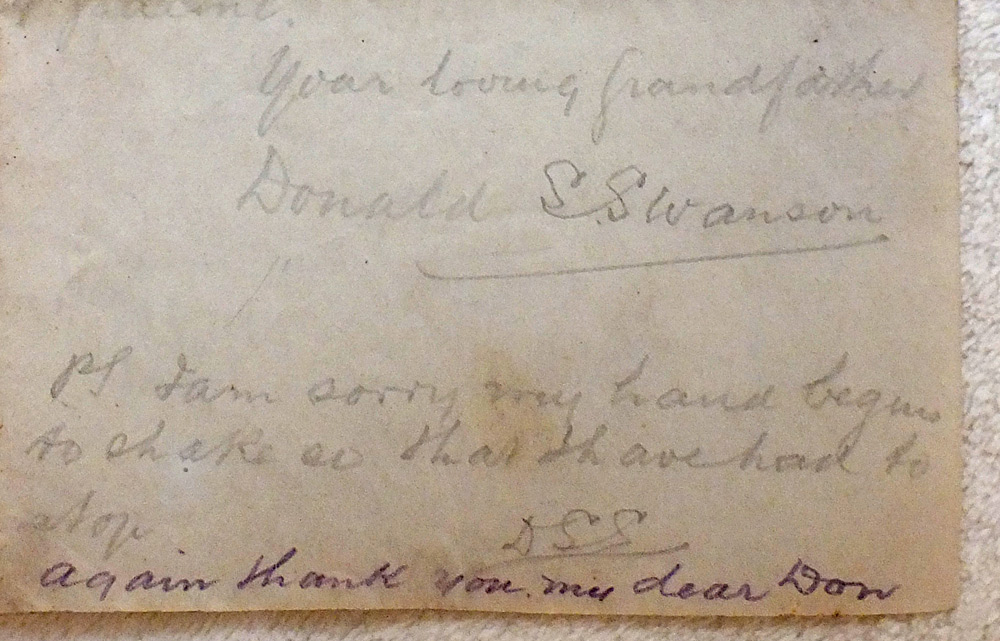 Your loving Grandfather
Donald S. Swanson
PS I am sorry my hand begins
to shake so that I have had to
stop
DSS
again thank you my dear Don